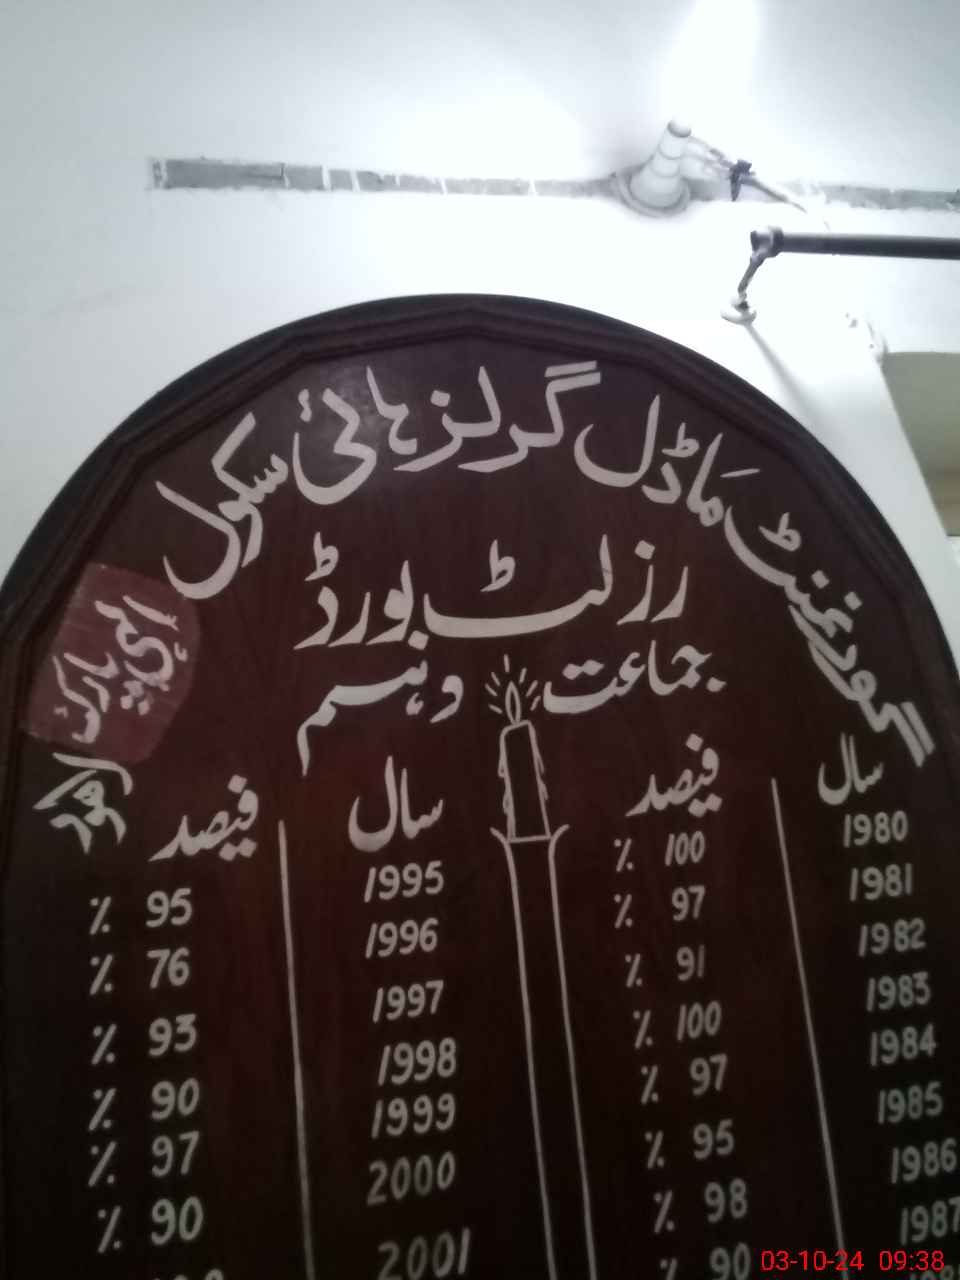 گورنمنٹ ماڈل گرلز ہائی سکول پارک لاہور
رزلٹ بورڈ
جماعت دہم
سال فیصد سال فیصد
1980 100 ٪ 1995 95 ٪
1981 97 ٪ 1996 76 ٪
1982 91 ٪ 1997 93 ٪
1983 100 ٪ 1998 90 ٪
1984 97 ٪ 1999 97 ٪
1985 95 ٪ 2000 90 ٪
1986 98 ٪ 2001
1987 90 ٪
03-10-24 09:38